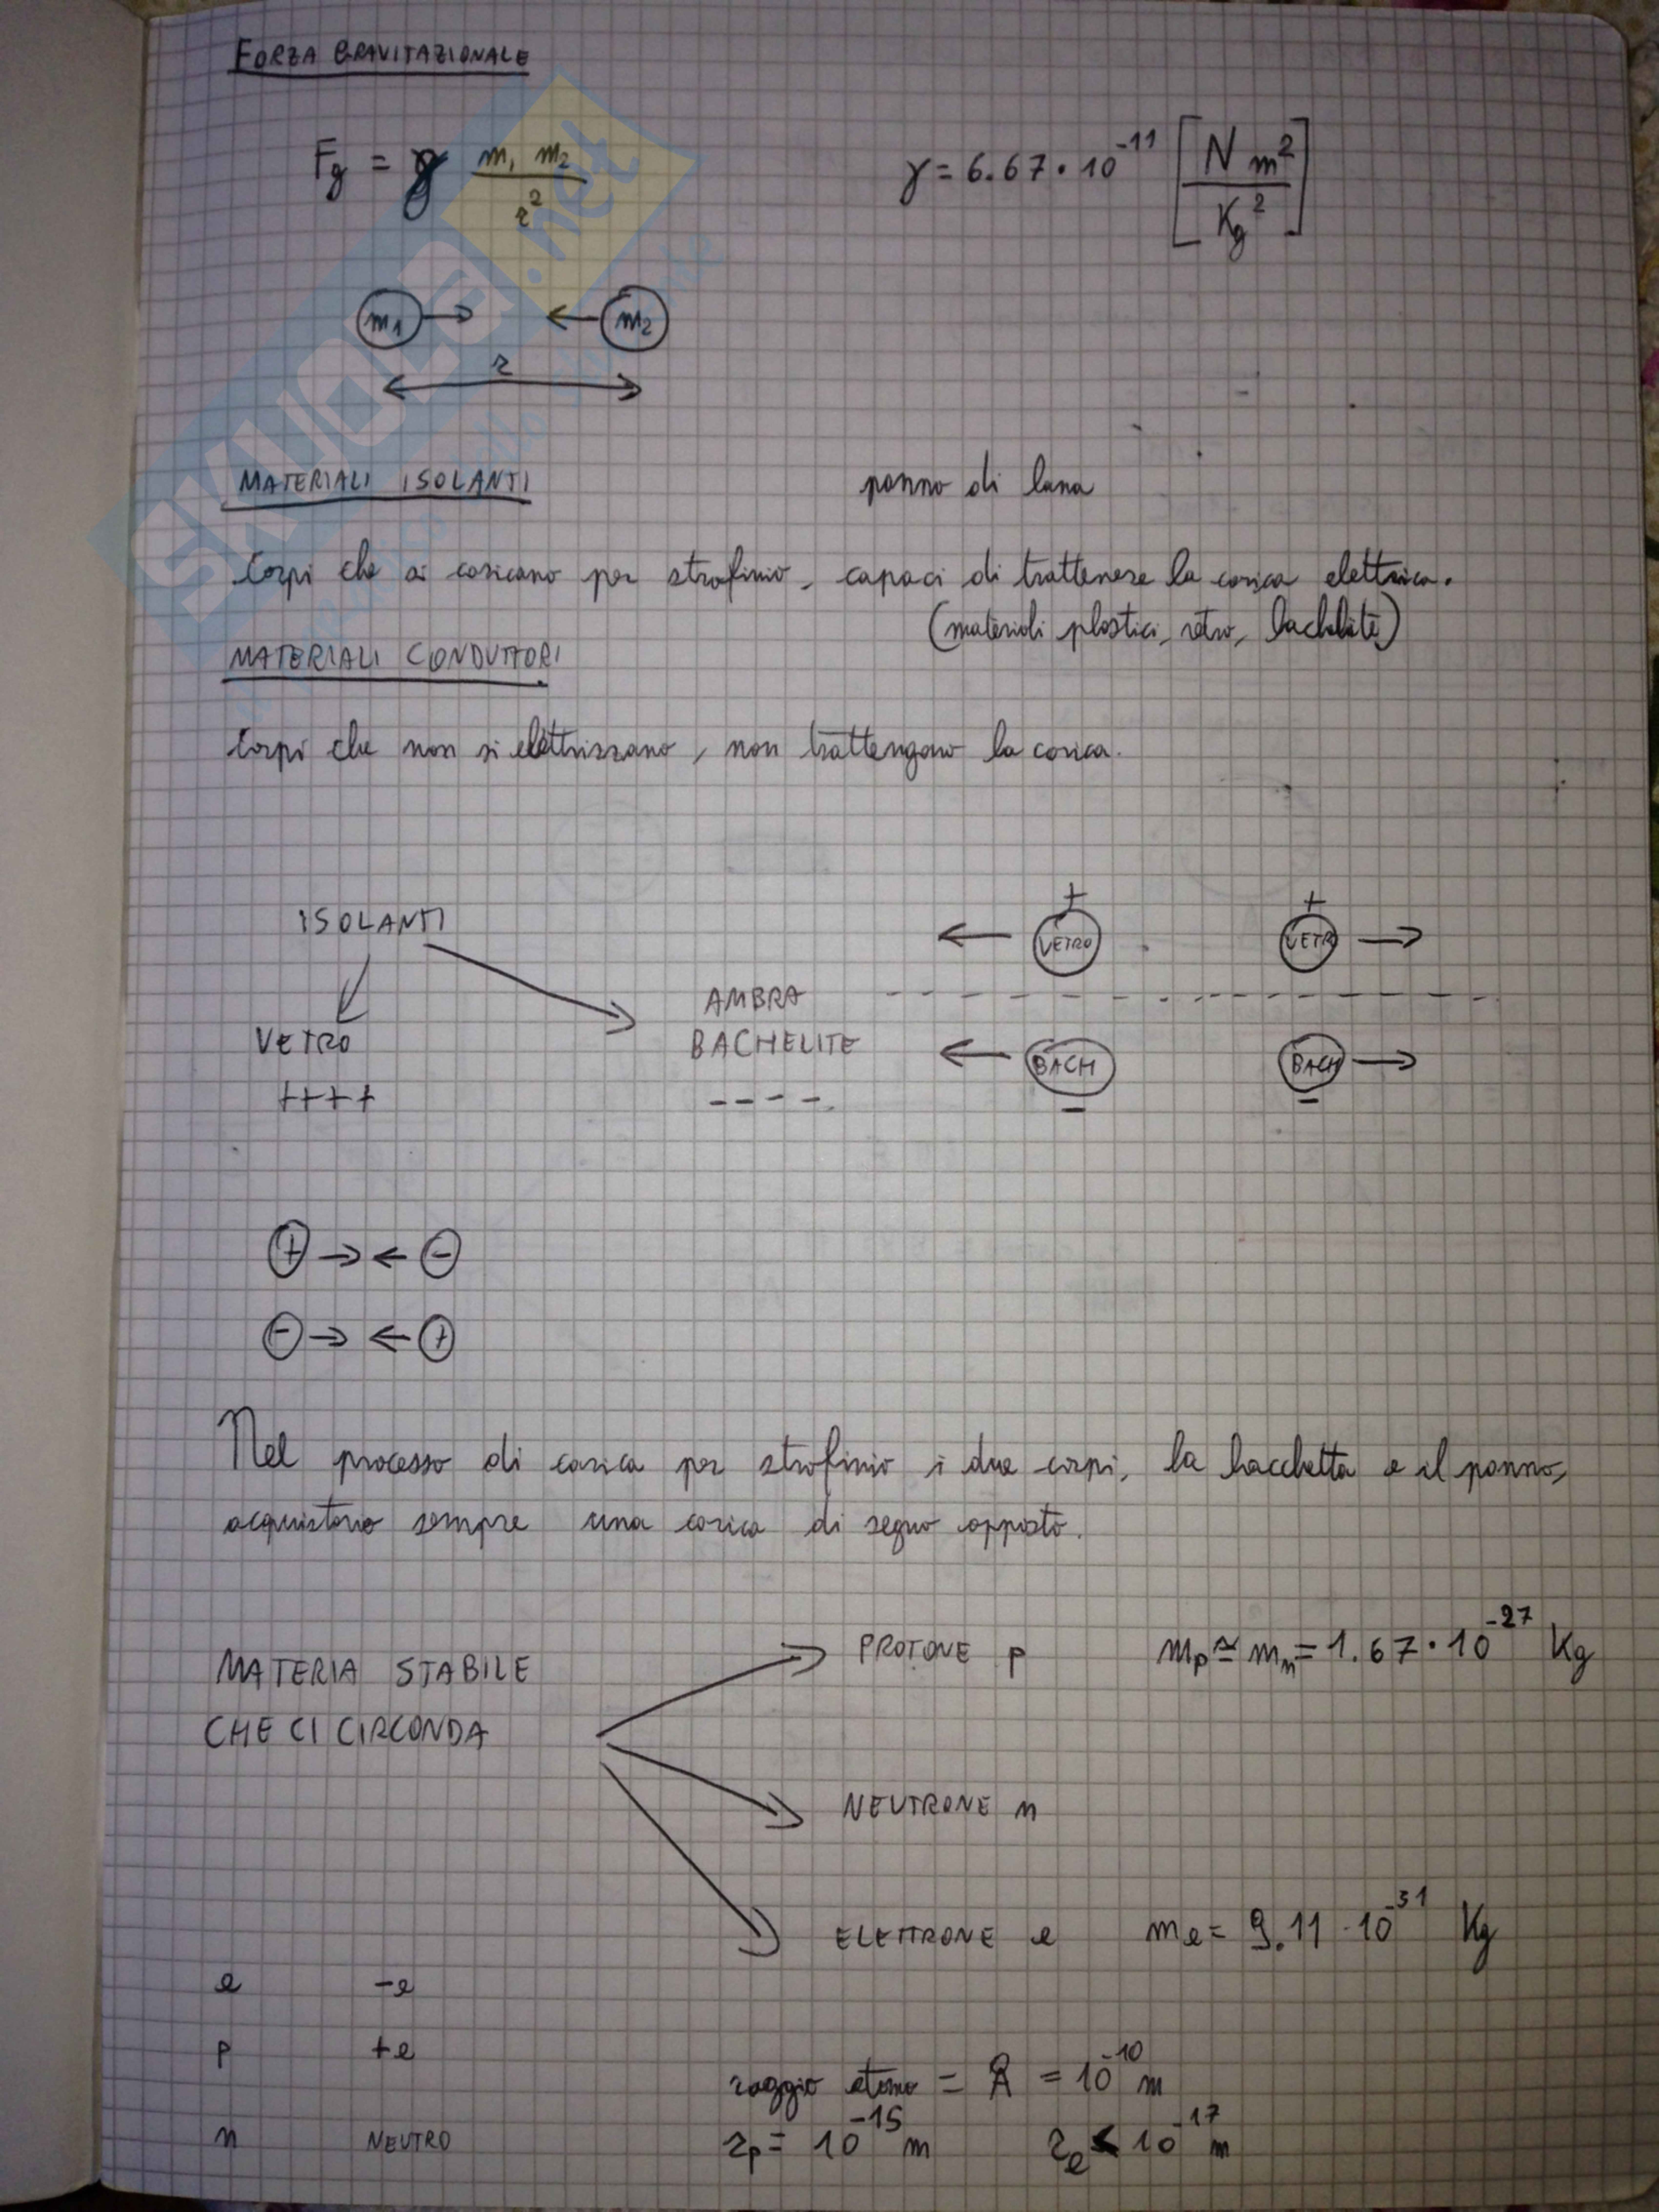 FORZA GRAVITAZIONALE
Fg = γ m1 m2 / r²
γ = 6.67 · 10⁻¹¹ [N m² / Kg²]
m1 m2
r
MATERIALI ISOLANTI
panno di lana
Corpi che si caricano per strofinio, capaci di trattenere la carica elettrica.
(materiali plastici, vetro, bachelite)
MATERIALI CONDUTTORI
Corpi che non si elettrizzano, non trattengono la carica.
ISOLANTI
+ +
VETRO VETR
AMBRA
VETRO BACHELITE
BACH BACH
++++ ----
- -
+ → ← -
- → ← +
Nel processo di carica per strofinio i due corpi, la bacchetta e il panno,
acquistano sempre una carica di segno opposto.
PROTONE p mp ≃ mn = 1.67 · 10⁻²⁷ Kg
MATERIA STABILE
CHE CI CIRCONDA
NEUTRONE n
ELETTRONE e me = 9.11 · 10⁻³¹ Kg
e -e
p +e
raggio atomo = Å = 10⁻¹⁰ m
n NEUTRO
rp = 10⁻¹⁵ m re < 10⁻¹⁷ m
SKUOLA.net